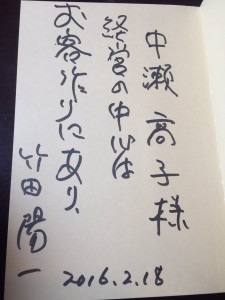 中瀬高子様
経営の中心は
お客作りにあり、
竹田陽一
2016.2.18